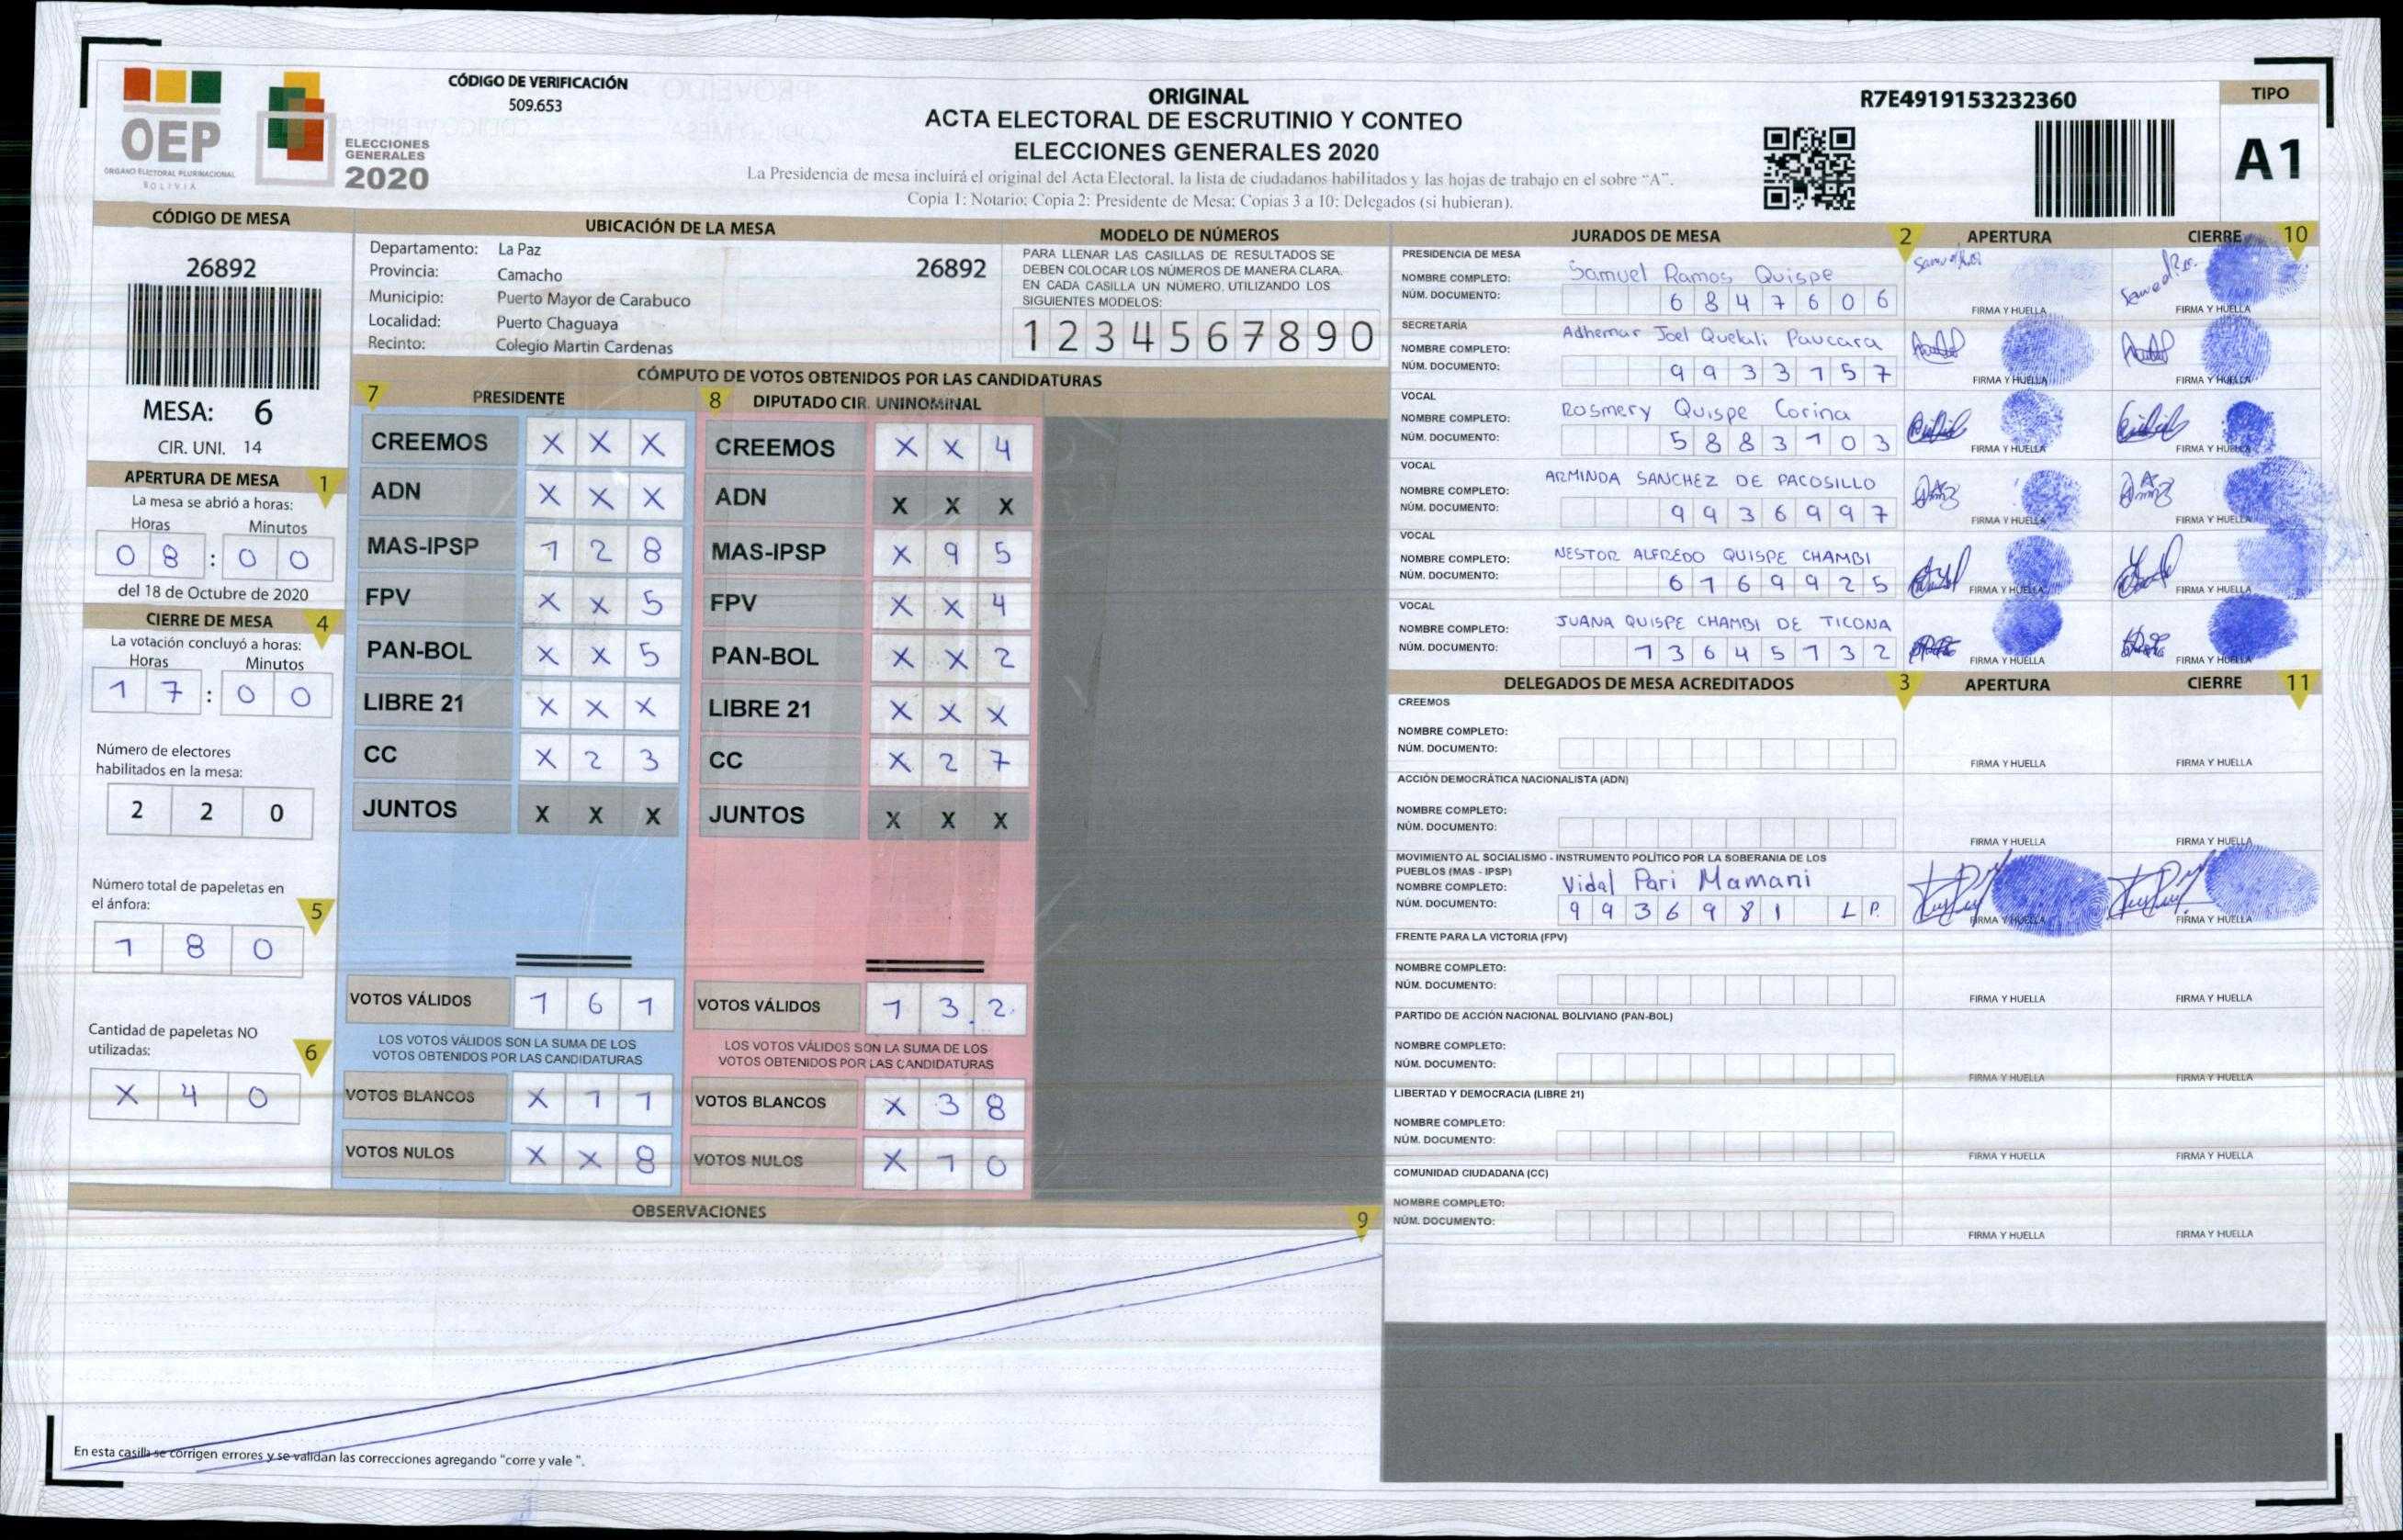 OEP
ÓRGANO ELECTORAL PLURINACIONAL
BOLIVIA
ELECCIONES
GENERALES
2020
CÓDIGO DE VERIFICACIÓN
509.653
ORIGINAL
ACTA ELECTORAL DE ESCRUTINIO Y CONTEO
ELECCIONES GENERALES 2020
La Presidencia de mesa incluirá el original del Acta Electoral, la lista de ciudadanos habilitados y las hojas de trabajo en el sobre “A”.
Copia 1: Notario; Copia 2: Presidente de Mesa; Copias 3 a 10: Delegados (si hubieran).
R7E4919153232360
TIPO
A1
CÓDIGO DE MESA
26892
MESA: 6
CIR. UNI. 14
APERTURA DE MESA 1
La mesa se abrió a horas:
Horas Minutos
0 8 : 0 0
del 18 de Octubre de 2020
CIERRE DE MESA 4
La votación concluyó a horas:
Horas Minutos
1 7 : 0 0
Número de electores
habilitados en la mesa:
2 2 0
Número total de papeletas en
el ánfora: 5
1 8 0
Cantidad de papeletas NO
utilizadas: 6
X 4 0
UBICACIÓN DE LA MESA
Departamento: La Paz
Provincia: Camacho
26892
Municipio: Puerto Mayor de Carabuco
Localidad: Puerto Chaguaya
Recinto: Colegio Martin Cardenas
MODELO DE NÚMEROS
PARA LLENAR LAS CASILLAS DE RESULTADOS SE
DEBEN COLOCAR LOS NÚMEROS DE MANERA CLARA.
EN CADA CASILLA UN NÚMERO, UTILIZANDO LOS
SIGUIENTES MODELOS:
1 2 3 4 5 6 7 8 9 0
CÓMPUTO DE VOTOS OBTENIDOS POR LAS CANDIDATURAS
7 PRESIDENTE
CREEMOS X X X
ADN X X X
MAS-IPSP 1 2 8
FPV X X 5
PAN-BOL X X 5
LIBRE 21 X X X
CC X 2 3
JUNTOS X X X
VOTOS VÁLIDOS 1 6 1
LOS VOTOS VÁLIDOS SON LA SUMA DE LOS
VOTOS OBTENIDOS POR LAS CANDIDATURAS
VOTOS BLANCOS X 1 1
VOTOS NULOS X X 8
8 DIPUTADO CIR. UNINOMINAL
CREEMOS X X 4
ADN X X X
MAS-IPSP X 9 5
FPV X X 4
PAN-BOL X X 2
LIBRE 21 X X X
CC X 2 7
JUNTOS X X X
VOTOS VÁLIDOS 1 3 2
LOS VOTOS VÁLIDOS SON LA SUMA DE LOS
VOTOS OBTENIDOS POR LAS CANDIDATURAS
VOTOS BLANCOS X 3 8
VOTOS NULOS X 1 0
OBSERVACIONES 9
En esta casilla se corrigen errores y se validan las correcciones agregando "corre y vale ".
JURADOS DE MESA 2 APERTURA CIERRE 10
PRESIDENCIA DE MESA
NOMBRE COMPLETO: Samuel Ramos Quispe
NÚM. DOCUMENTO: 6 8 4 7 6 0 6
FIRMA Y HUELLA FIRMA Y HUELLA
SECRETARÍA
NOMBRE COMPLETO: Adhemar Joel Quelali Paucara
NÚM. DOCUMENTO: 9 9 3 3 1 5 7
FIRMA Y HUELLA FIRMA Y HUELLA
VOCAL
NOMBRE COMPLETO: Rosmery Quispe Corina
NÚM. DOCUMENTO: 5 8 8 3 1 0 3
FIRMA Y HUELLA FIRMA Y HUELLA
VOCAL
NOMBRE COMPLETO: ARMINDA SANCHEZ DE PACOSILLO
NÚM. DOCUMENTO: 9 9 3 6 9 9 7
FIRMA Y HUELLA FIRMA Y HUELLA
VOCAL
NOMBRE COMPLETO: NESTOR ALFREDO QUISPE CHAMBI
NÚM. DOCUMENTO: 6 1 6 9 9 2 5
FIRMA Y HUELLA FIRMA Y HUELLA
VOCAL
NOMBRE COMPLETO: JUANA QUISPE CHAMBI DE TICONA
NÚM. DOCUMENTO: 1 3 6 4 5 1 3 2
FIRMA Y HUELLA FIRMA Y HUELLA
DELEGADOS DE MESA ACREDITADOS 3 APERTURA CIERRE 11
CREEMOS
NOMBRE COMPLETO:
NÚM. DOCUMENTO:
FIRMA Y HUELLA FIRMA Y HUELLA
ACCIÓN DEMOCRÁTICA NACIONALISTA (ADN)
NOMBRE COMPLETO:
NÚM. DOCUMENTO:
FIRMA Y HUELLA FIRMA Y HUELLA
MOVIMIENTO AL SOCIALISMO - INSTRUMENTO POLÍTICO POR LA SOBERANIA DE LOS
PUEBLOS (MAS - IPSP)
NOMBRE COMPLETO: Vidal Pari Mamani
NÚM. DOCUMENTO: 9 9 3 6 9 8 1 L P.
FIRMA Y HUELLA FIRMA Y HUELLA
FRENTE PARA LA VICTORIA (FPV)
NOMBRE COMPLETO:
NÚM. DOCUMENTO:
FIRMA Y HUELLA FIRMA Y HUELLA
PARTIDO DE ACCIÓN NACIONAL BOLIVIANO (PAN-BOL)
NOMBRE COMPLETO:
NÚM. DOCUMENTO:
FIRMA Y HUELLA FIRMA Y HUELLA
LIBERTAD Y DEMOCRACIA (LIBRE 21)
NOMBRE COMPLETO:
NÚM. DOCUMENTO:
FIRMA Y HUELLA FIRMA Y HUELLA
COMUNIDAD CIUDADANA (CC)
NOMBRE COMPLETO:
NÚM. DOCUMENTO:
FIRMA Y HUELLA FIRMA Y HUELLA